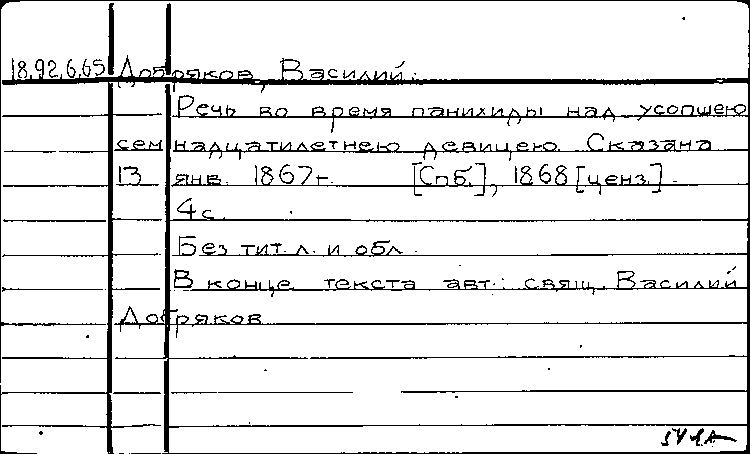 18.92.6.65 Добряков, Василий.
Речь во время панихиды над усопшею
семнадцатилетнею девицею. Сказана
13 янв. 1867г. [Спб.], 1868 [ценз.].
4с.
Без тит. л. и обл.
В конце текста авт.: свящ. Василий
Добряков